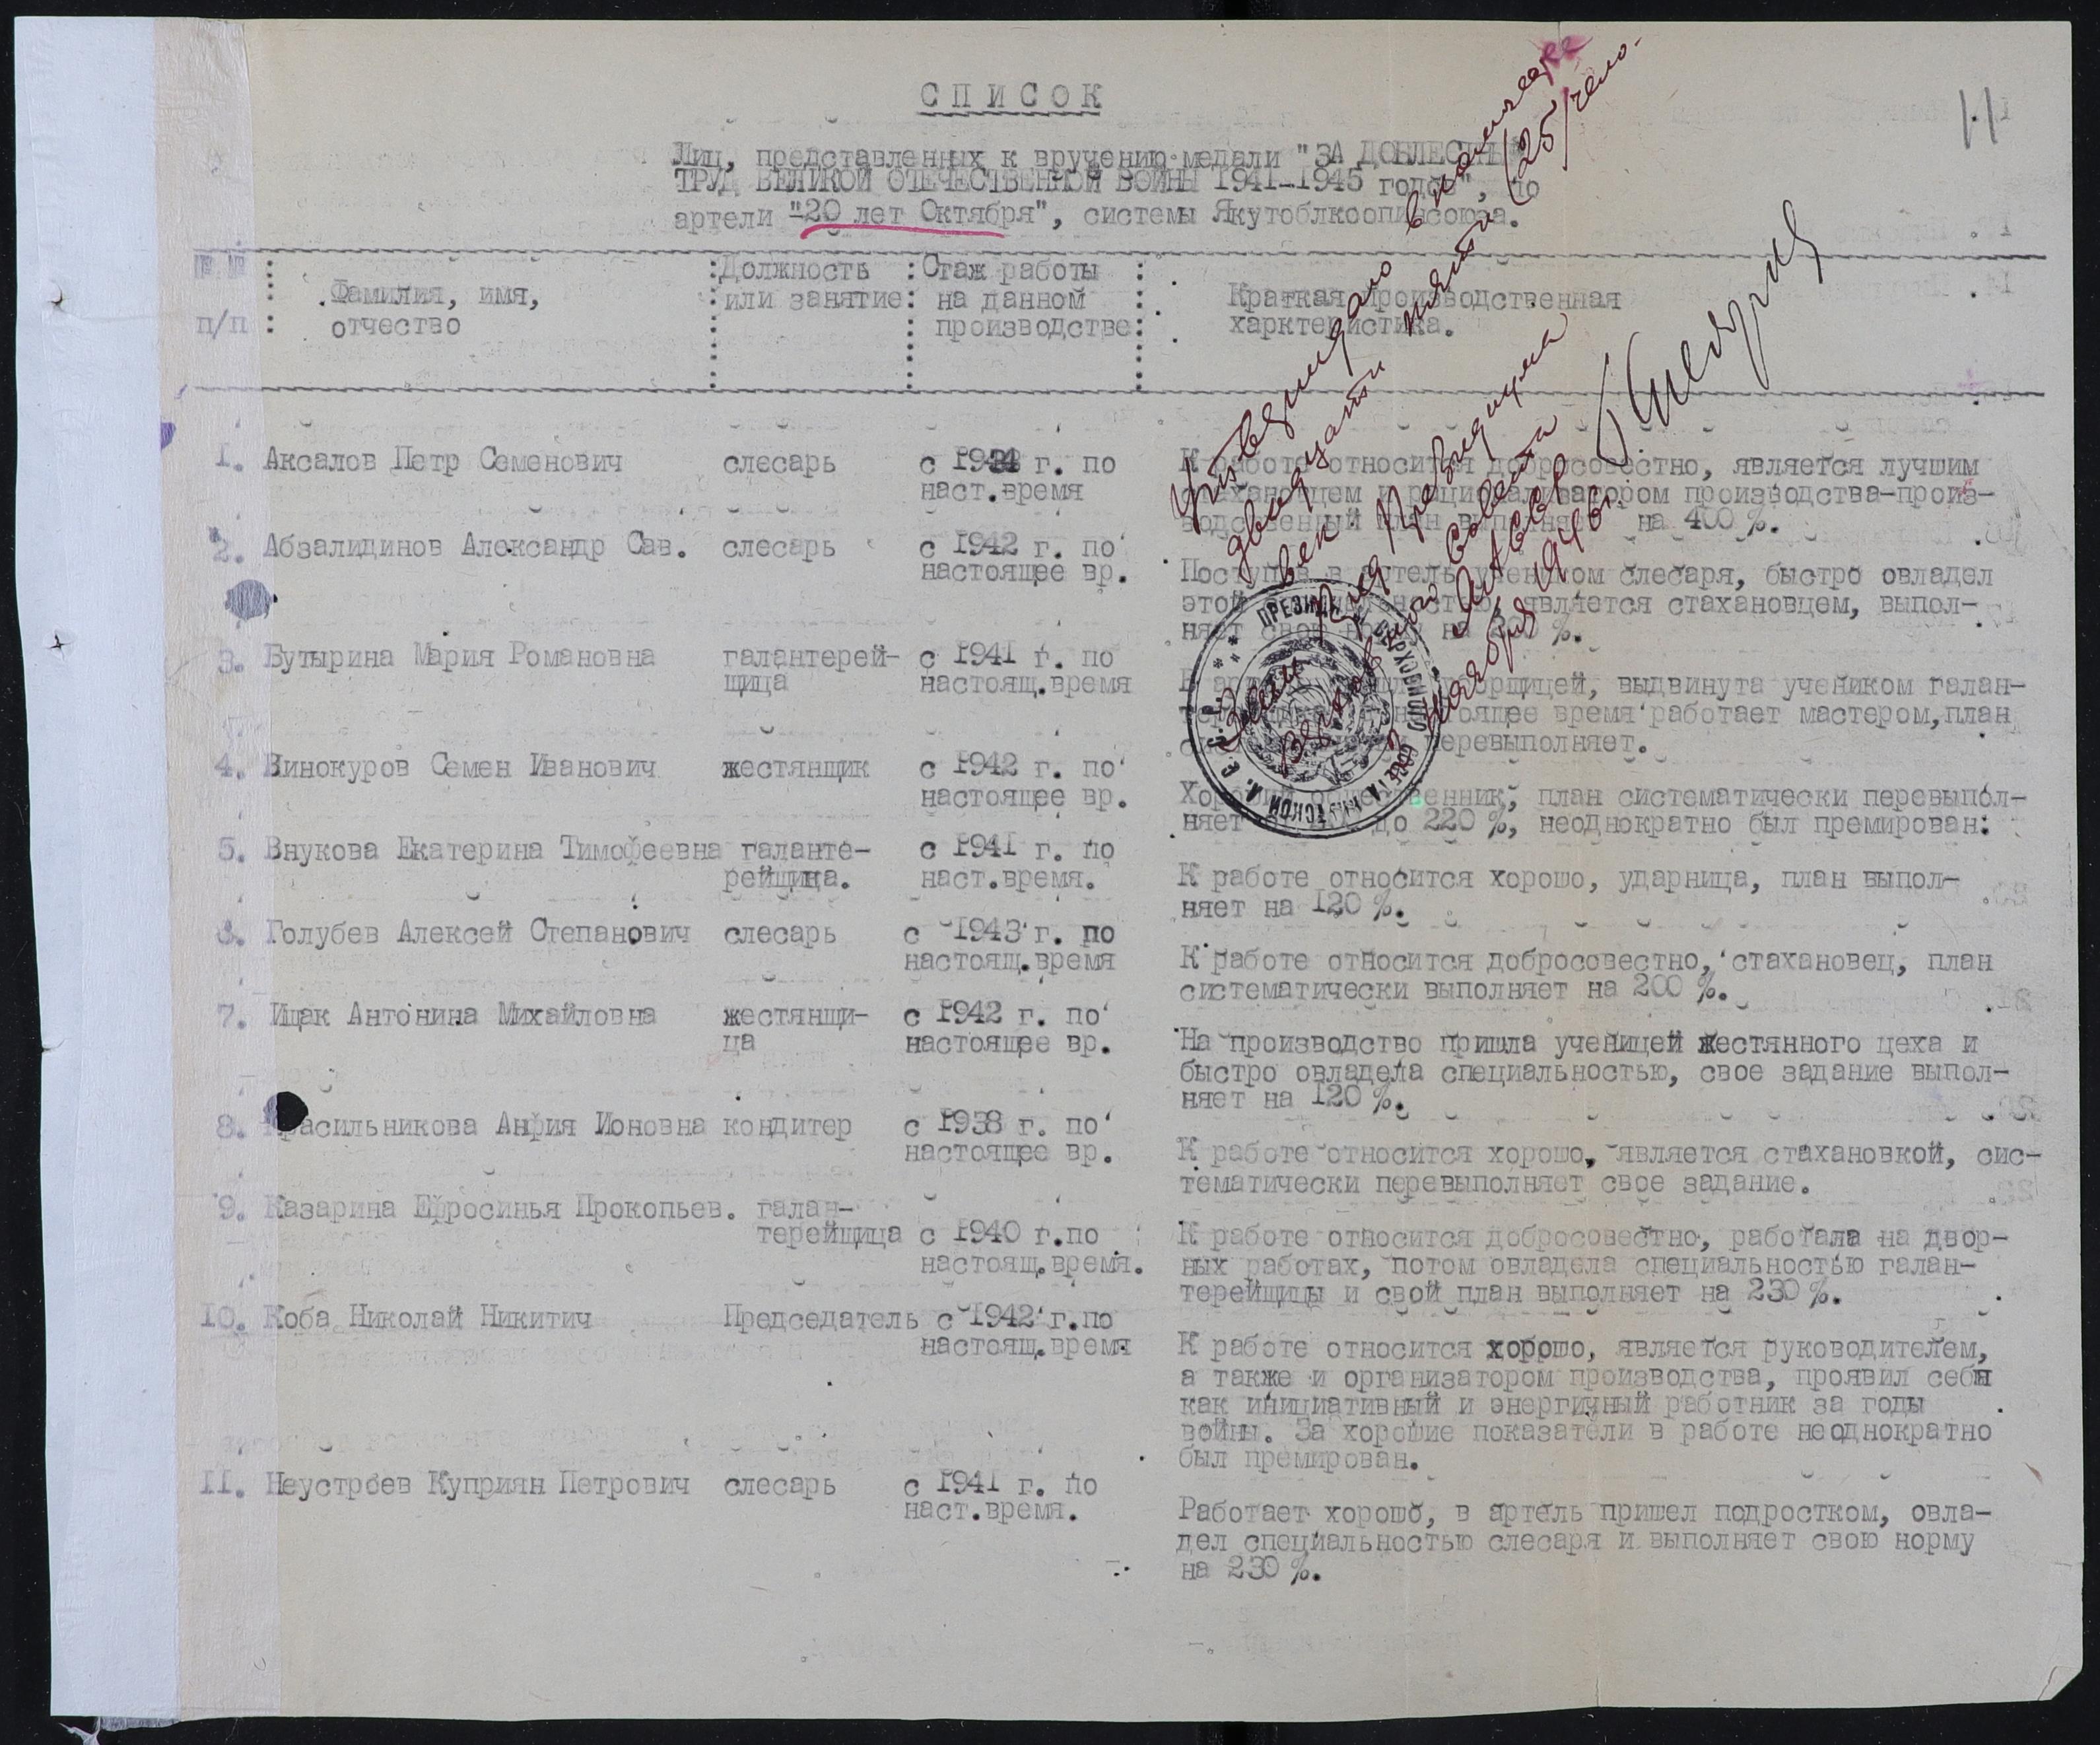 11
СПИСОК
Лиц, представленных к вручению медали "ЗА ДОБЛЕСТН
ТРУД ВЕЛИКОЙ ОТЕЧЕСТВЕННОЙ ВОЙНЫ 1941-1945 годов", по
артели "20 лет Октября", системы Якутоблкоопинсоюза.
№№ п/п
Фамилия, имя, отчество
Должность или занятие
Стаж работы на данном производстве
Краткая производственная харктеристика.
1. Аксалов Петр Семенович слесарь с г. по
наст.время
К работе относится добросовестно, является лучшим
стахановцем и рационализатором производства-произ-
водственный план выполняет на 400 %.
2. Абзалидинов Александр Сав. слесарь с 1942 г. по
настоящее вр.
Поступив в артель учеником слесаря, быстро овладел
этой является стахановцем, выпол-
няет свою норму на %.
3. Бутырина Мария Романовна галантерей- с 1941 г. по
щица настоящ.время
В выдвинута учеником галан-
настоящее время работает мастером,план
перевыполняет.
4. Винокуров Семен Иванович жестянщик с 1942 г. по
настоящее вр.
Хороший план систематически перевыпол-
няет до 220 %, неоднократно был премирован:
5. Внукова Екатерина Тимофеевна галанте- с 1941 г. по
рейщица. наст.время.
К работе относится хорошо, ударница, план выпол-
няет на 120 %.
6. Голубев Алексей Степанович слесарь с 1943 г. по
настоящ.время
К работе относится добросовестно, стахановец, план
систематически выполняет на 200 %.
7. Ищак Антонина Михайловна жестянщи- с 1942 г. по
ца настоящее вр.
На производство пришла ученицей жестянного цеха и
быстро овладела специальностью, свое задание выпол-
няет на 120 %.
8. Красильникова Анфия Ионовна кондитер с 1938 г. по
настоящее вр.
К работе относится хорошо, является стахановкой, сис-
тематически перевыполняет свое задание.
9. Казарина Ефросинья Прокопьев. галан-
терейщица с 1940 г.по
настоящ.время.
К работе относится добросовестно, работала на двор-
ных работах, потом овладела специальностью галан-
терейщицы и свой план выполняет на 230 %.
10. Коба Николай Никитич Председатель с 1942 г.по
настоящ.время
К работе относится хорошо, является руководителем,
а также и организатором производства, проявил себя
как инициативный и энергичный работник за годы
войны. За хорошие показатели в работе неоднократно
был премирован.
11. Неустроев Куприян Петрович слесарь с 1941 г. по
наст.время.
Работает хорошо, в артель пришел подростком, овла-
дел специальностью слесаря и выполняет свою норму
на 230 %.
Утверждаю в количестве
двадцати пяти (25) чело-
век
Зам Пред Президиума
Верховного Совета
ЯАССР
ноября 1946г.
ПРЕЗИДИУМ ВЕРХОВНОГО СОВЕТА ЯКУТСКОЙ А.С.С.Р.